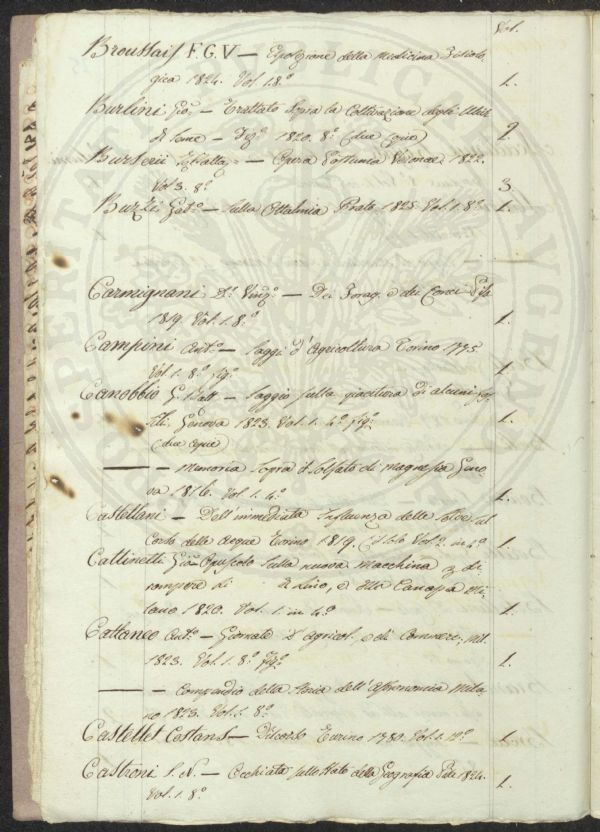 Vol.
Broussais F. G. V — Esposizione della Medicina Fisiolo
gica 1824. Vol. 1. 8.° 1.
Burlini Gio. — Trattato sopra la Coltivazione degli Ulivi
di seme — 1820. 8.° (due copie) 2
Burserii — Opera Postuma Veronae 1822.
Vol 3. 8.° 3.
Buzzi — Sulla Ottalmia Prato 1825. Vol. 1. 8.° 1.
Carmignani D.r Vinc.° — Dei Forag. e dei Concі Pisa
1819. Vol. 1. 8.° 1.
Campini Ant.° — Saggi d'Agricoltura Torino 1775.
Vol. 1. 8.° fig.° 1.
Canobbio G. Batt — Saggio sulla giacitura di alcuni fos
sili. Genova 1823. Vol. 1. 4.° fig.° 1.
(due copie)
— — Memoria sopra il Solfato di Magnesia Geno
va 1816. Vol. 1. 4.° 1.
Castellani — Dell'immediata Influenza delle Selve sul
Corso delle Acque Torino 1819. Vol 2. in 4.° 1.
Cattinetti Gio. Opuscolo sulla nuova Macchina p di
rompere il Lino, e Canapa Mi
lano 1820. Vol. 1. in 4.° 1.
Cattaneo Ant.° — Giornale d'agricol. e di Commerc. Mil.
1823. Vol. 1. 8.° fig.° 1.
— — Compendio della Storia dell'Astronomia Mila
no 1823. Vol. 1. 8.°
Castellet Costans — Discorso Turino 1780. Vol. 1. 12.° 1.
Castroni S. N. — Occhiata sullo Stato della Geografia Pisa 1824.
Vol. 1. 8.° 1.